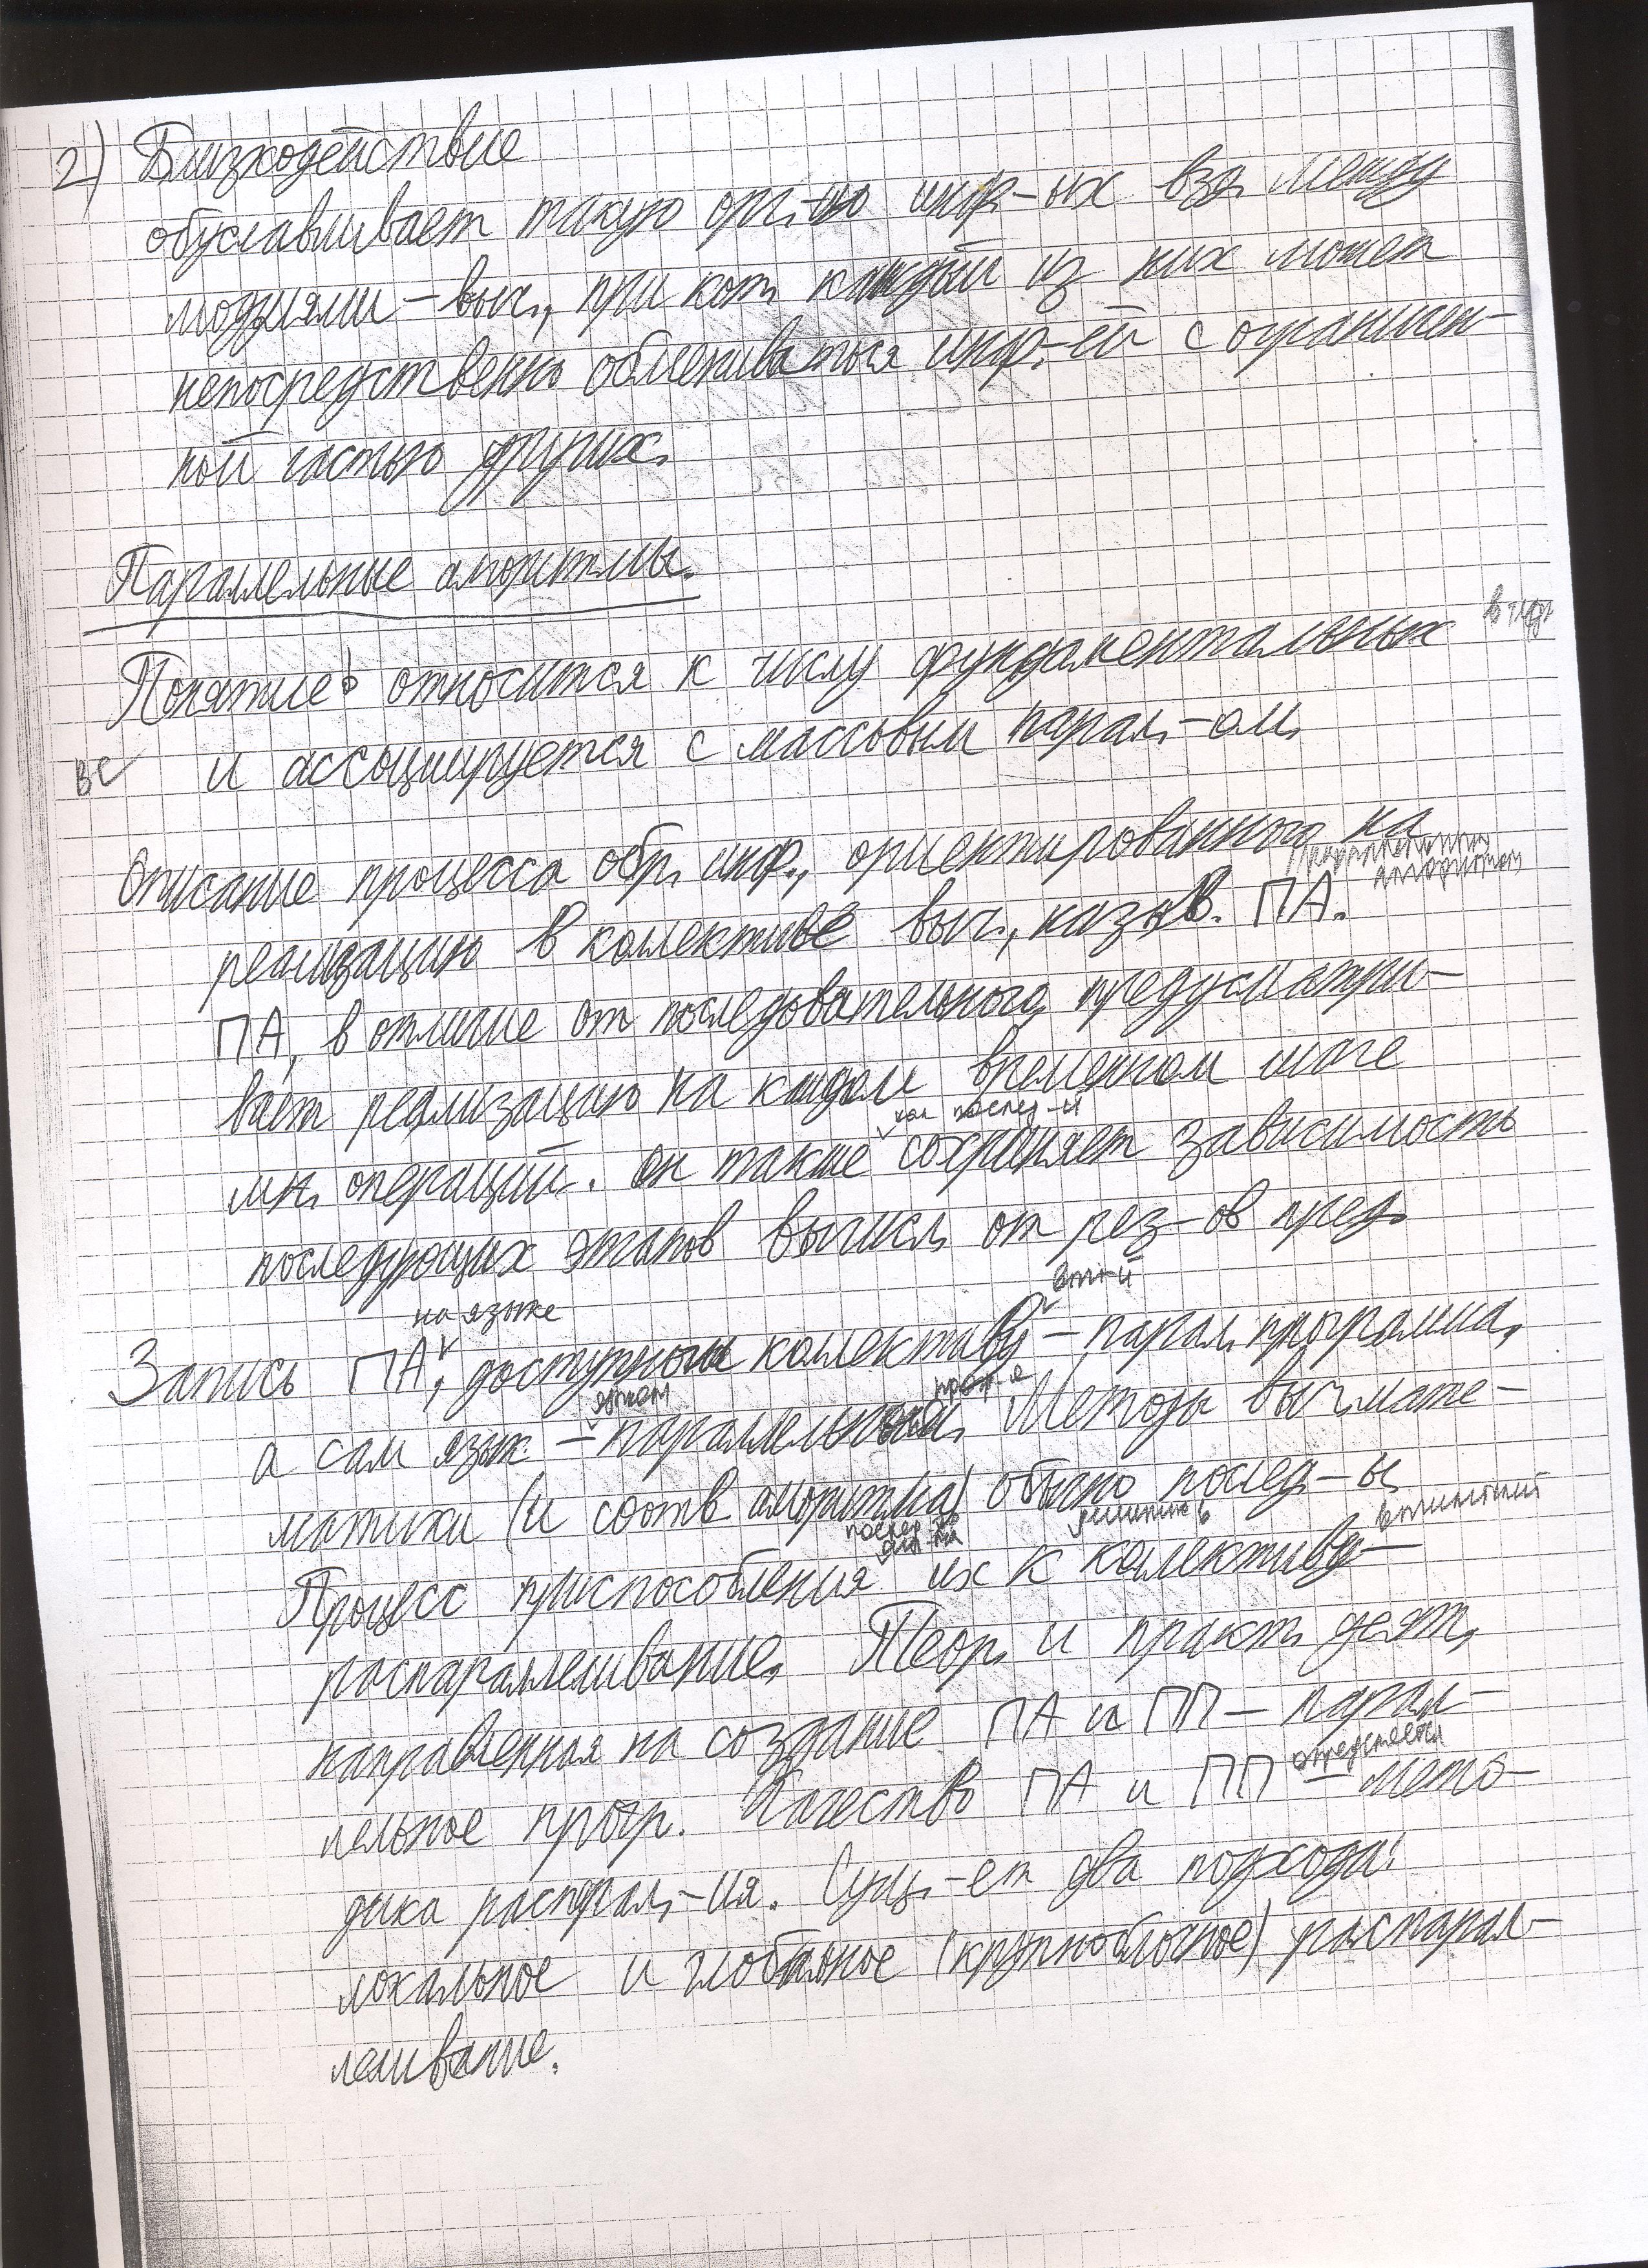 2) Близкодействие
обуславливает такую орг-ю инф-ых вз. между
модулями-выч., при кот. каждый из них может
непосредственно обмениваться инф-ей с ограничен-
ной частью других.
Параллельные алгоритмы.
в теор
Понятие относится к числу фундаментальных
ВС и ассоциируется с массовым парал-ом.
Описание процесса обр. инф., ориентированного на
реализацию в коллективе выч., назыв. ПА.
ПА, в отличие от последовательного, предусматри-
вает реализацию на каждом временном шаге
как послед-й
мн. операций. Он также сохраняет зависимость
последующих этапов вычисл. от рез-ов пред.
на языке
Запись ПА, доступном коллективу – парал. программа,
а сам язык – параллельный. Методы выч. мате-
матики (и соотв алгоритмы) обычно послед-ы
Процесс приспособления их к коллективу –
распараллеливание. Теор. и практ. деят.,
направленная на создание ПА и ПП – парал-
определяется
лельное прогр. Качество ПА и ПП – мето-
дика распарал-ия. Сущ-ет два подхода:
локальное и глобальное (крупноблочное) распарал-
леливание.